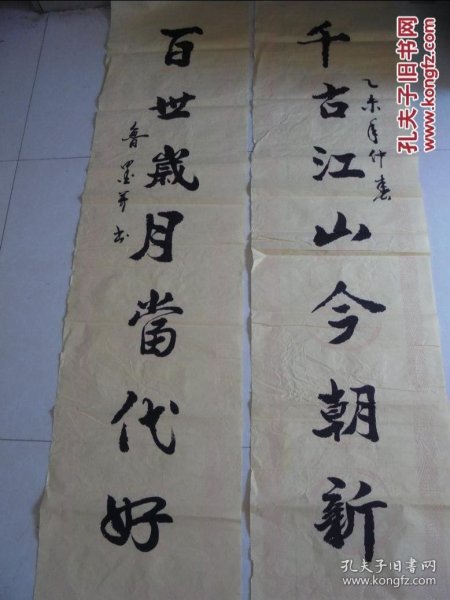 千古江山今朝新
乙未年仲春
百世歲月當代好
魯墨并书
孔夫子旧书网
www.kongfz.com
孔夫子旧书网
www.kongfz.com